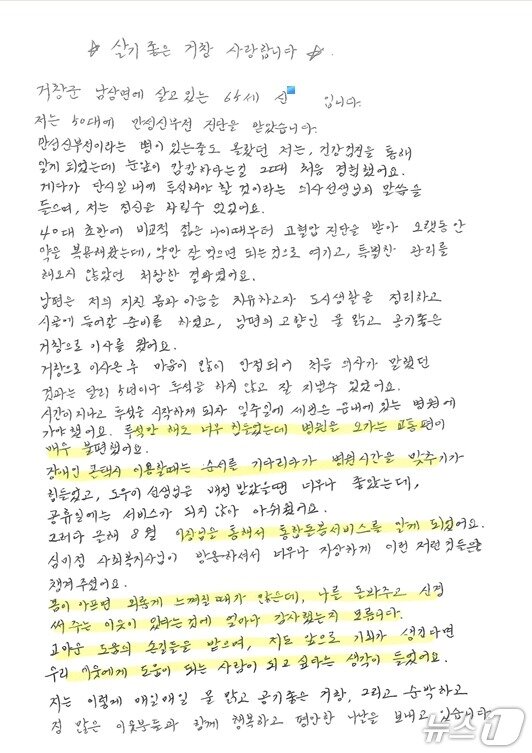 ☆ 살기 좋은 거창 사랑합니다 ☆.
거창군 남상면에 살고있는 65세 신 입니다.
저는 50대에 만성신부전 진단을 받았습니다.
만성신부전이라는 병이 있는줄도 몰랐던 저는, 건강검진을 통해
알게 되었는데 눈앞이 캄캄하다는걸 그때 처음 경험했어요.
게다가 단시일 내에 투석해야 할 것이라는 의사선생님의 말씀을
들으며, 저는 정신을 차릴수 없었어요.
40대 초반에 비교적 젊은 나이때부터 고혈압 진단을 받아 오랫동안
약은 복용해왔는데, 약만 잘 먹으면 되는것으로 여기고, 특별한 관리를
해오지 않았던 처참한 결과였어요.
남편은 저의 지친 몸과 마음을 치유하고자 도시생활을 정리하고
시골에 들어갈 준비를 하였고, 남편의 고향인 물 맑고 공기좋은
거창으로 이사를 왔어요.
거창으로 이사온 후 마음이 많이 안정되어 처음 의사가 말했던
것과는 달리 5년이나 투석을 하지 않고 잘 지낼수 있었어요.
시간이 지나고 투석을 시작하게 되자 일주일에 세번은 읍내에 있는 병원에
가야했어요. 투석만 해도 너무 힘들었는데 병원을 오가는 교통편이
매우 불편했어요.
장애인 콘택시 이용할때는 순서를 기다리다가 병원시간을 맞추기가
힘들었고, 도우미 선생님은 배정 받았을땐 너무나 좋았는데,
공휴일에는 서비스가 되지 않아 아쉬웠어요.
그러다 올해 8월 이장님을 통해서 통합돌봄서비스를 알게 되었어요.
심이정 사회복지사님이 방문하셔서 너무나 자상하게 이런 저런것들을
챙겨 주었어요.
몸이 아프면 외롭게 느껴질때가 많은데, 나를 돌봐주고 신경
써 주는 이웃이 있다는것에 얼마나 감사했는지 모릅니다.
고마운 도움의 손길들을 받으며, 저도 앞으로 기회가 생긴다면
우리 이웃에게 도움이 되는 사람이 되고 싶다는 생각이 들었어요.
저는 이렇게 매일매일 물 맑고 공기좋은 거창, 그리고 순박하고
정 많은 이웃분들과 함께 행복하고 평안한 나날을 보내고 있습니다
뉴스1